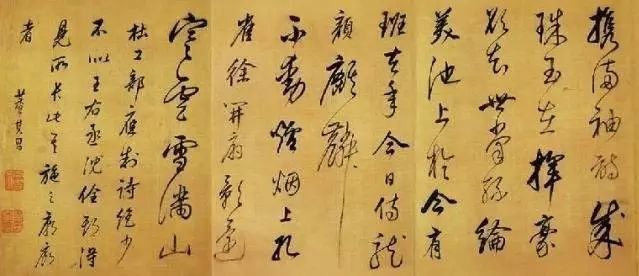 携滿袖詩成
珠玉在揮毫
欲知世掌絲綸
美池上於今有
班去年今日侍龍
顏麒麟
不動爐烟上孔
雀徐開扇影還
寒雲雪滿山
杜工部應制詩絕少
不似王右丞沈佺期得
見所長此其施之廊廟
者
董其昌